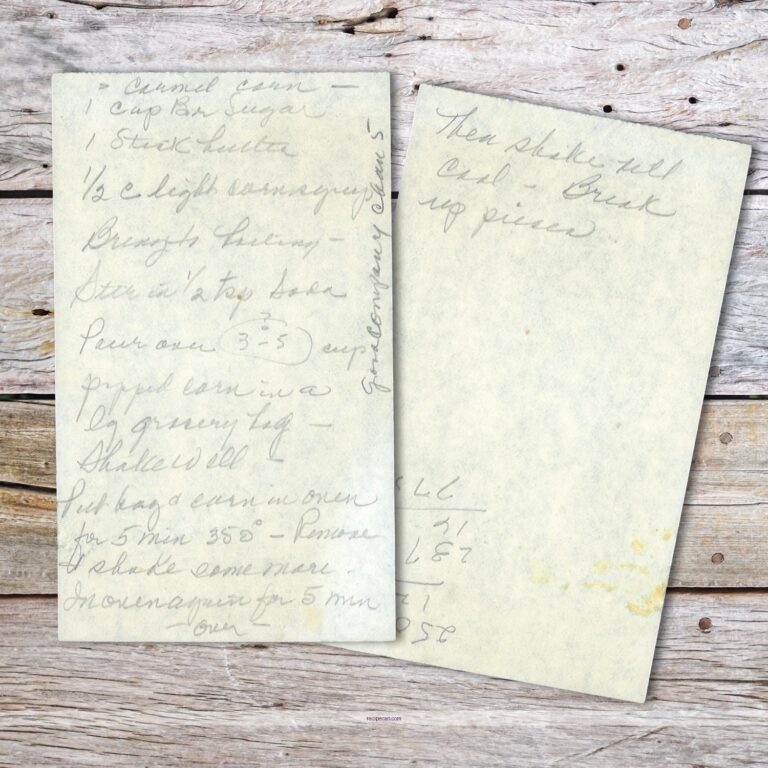 Carmel corn —
1 cup Br Sugar
1 Stick butter
1/2 c light cornsyrup
Bring to boiling —
Stir in 1/2 tsp Soda
Pour over 3-5 cup
popped corn in a
lg grocery bag —
Shake well —
Put bag & corn in oven
for 5 min 350° — Remove
& shake some more.
In oven again for 5 min
— over —
company
Then shake till
cool — Break
up pieces
250
12
237
recipecari.com